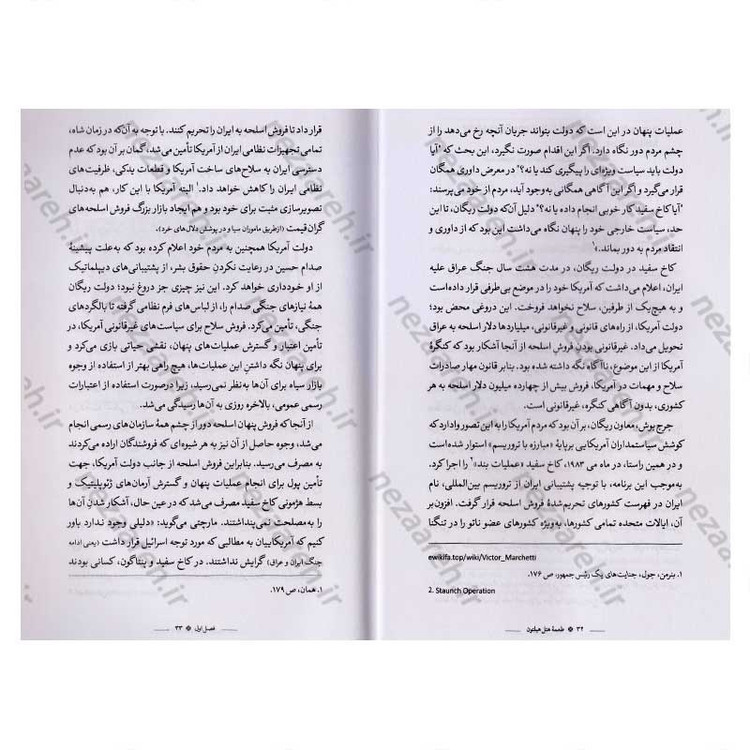 عملیات پنهان در این است که دولت بتواند جریان آنچه رخ می‌دهد را از
چشم مردم دور نگاه دارد. اگر این اقدام صورت نگیرد، این بحث که "آیا
دولت باید سیاست ویژه‌ای را پیگیری کند یا نه؟" در معرض داوری همگان
قرار می‌گیرد و اگر این آگاهی همگانی به‌وجود آید، مردم از خود می‌پرسند:
"آیا کاخ سفید کار خوبی انجام داده یا نه؟" دلیل آن‌که دولت ریگان، تا این
حد، سیاست خارجی خود را پنهان نگاه می‌داشت این بود که از داوری و
انتقاد مردم به دور بماند.»۱
کاخ سفید در دولت ریگان، در مدت هشت سال جنگ عراق علیه
ایران، اعلام می‌داشت که آمریکا خود را در موضع بی‌طرفی قرار داده است
و به هیچ‌یک از طرفین، سلاح نخواهد فروخت. این دروغی محض بود؛
دولت آمریکا، از راه‌های قانونی و غیرقانونی، میلیاردها دلار اسلحه به عراق
تحویل می‌داد. غیرقانونی بودن فروش اسلحه از آنجا آشکار بود که کنگرهٔ
آمریکا از این موضوع، ناآگاه نگه داشته شده بود. بنابر قانون مهار صادرات
سلاح و مهمات در آمریکا، فروش بیش از چهارده میلیون دلار اسلحه به هر
کشوری، بدون آگاهی کنگره، غیرقانونی است.
جرج بوش، معاون ریگان، بر آن بود که مردم آمریکا را به این تصور وادارد که
کوشش سیاستمداران آمریکایی بر پایهٔ «مبارزه با تروریسم» استوار شده است
و در همین راستا، در ماه می ۱۹۸۳، کاخ سفید «عملیات بند»۲ را اجرا کرد.
به‌موجب این برنامه، با توجیه پشتیبانی ایران از تروریسم بین‌المللی، نام
ایران در فهرست کشورهای تحریم‌شدهٔ فروش اسلحه قرار گرفت. افزون‌بر
آن، ایالات متحده تمامی کشورها، به‌ویژه کشورهای عضو ناتو را در تنگنا
ewikifa.top/wiki/Victor_Marchetti
۱. بنرمن، جول، جنایت‌های یک رئیس جمهور، ص ۱۷۶.
2. Staunch Operation
۳۲ * طعمهٔ هتل هیلتون
قرار داد تا فروش اسلحه به ایران را تحریم کنند. با توجه به آن‌که در زمان شاه،
تمامی تجهیزات نظامی ایران از آمریکا تأمین می‌شد، گمان بر آن بود که عدم
دسترسی ایران به سلاح‌های ساخت آمریکا و قطعات یدکی، ظرفیت‌های
نظامی ایران را کاهش خواهد داد.۱ البته آمریکا با این کار، هم به‌دنبال
تصویرسازی مثبت برای خود بود و هم ایجاد بازار بزرگ فروش اسلحه‌های
گران‌قیمت (از طریق ماموران سیا و در پوشش دلال‌های خود).
دولت آمریکا همچنین به مردم خود اعلام کرده بود که به‌علت پیشینهٔ
صدام حسین در رعایت نکردن حقوق بشر، از پشتیبانی‌های دیپلماتیک
از او خودداری خواهد کرد. این نیز چیزی جز دروغ نبود؛ دولت ریگان
همهٔ نیازهای جنگی صدام را، از لباس‌های فرم نظامی گرفته تا بالگردهای
جنگی، تأمین می‌کرد. فروش سلاح برای سیاست‌های غیرقانونی آمریکا، در
تأمین اعتبار و گسترش عملیات‌های پنهان، نقشی حیاتی بازی می‌کرد و
برای پنهان نگه داشتن این عملیات‌ها، هیچ راهی بهتر از استفاده از وجوه
بازار سیاه برای آن‌ها به‌نظر نمی‌رسید، زیرا درصورت استفاده از اعتبارات
رسمی عمومی، بالاخره روزی به آن‌ها رسیدگی می‌شد.
از آنجا که فروش پنهان اسلحه دور از چشم همهٔ سازمان‌های رسمی انجام
می‌شد، وجوه حاصل از آن نیز به هر شیوه‌ای که فروشندگان اراده می‌کردند
به مصرف می‌رسید. بنابراین فروش اسلحه از جانب دولت آمریکا، جهت
تأمین پول برای انجام عملیات پنهان و گسترش آرمان‌های ژئوپلیتیک و
بسط هژمونی کاخ سفید مصرف می‌شد که در عین حال، آشکار شدن آن‌ها
را به‌مصلحت نمی‌پنداشتند. مارچتی می‌گوید: «دلیلی وجود ندارد باور
کنیم که آمریکاییان به مطالبی که مورد توجه اسرائیل قرار داشت (یعنی ادامه
جنگ ایران و عراق) گرایش نداشتند. در کاخ سفید و پنتاگون، کسانی بودند
۱. همان، ص ۱۷۹.
فصل اول * ۳۳
nezaareh.ir